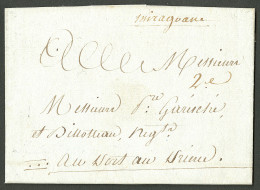 miragoane
A Messieurs
2.e
Messieurs P.re Garesché
et Billotteau, Neg.ts
au Port au Prince.